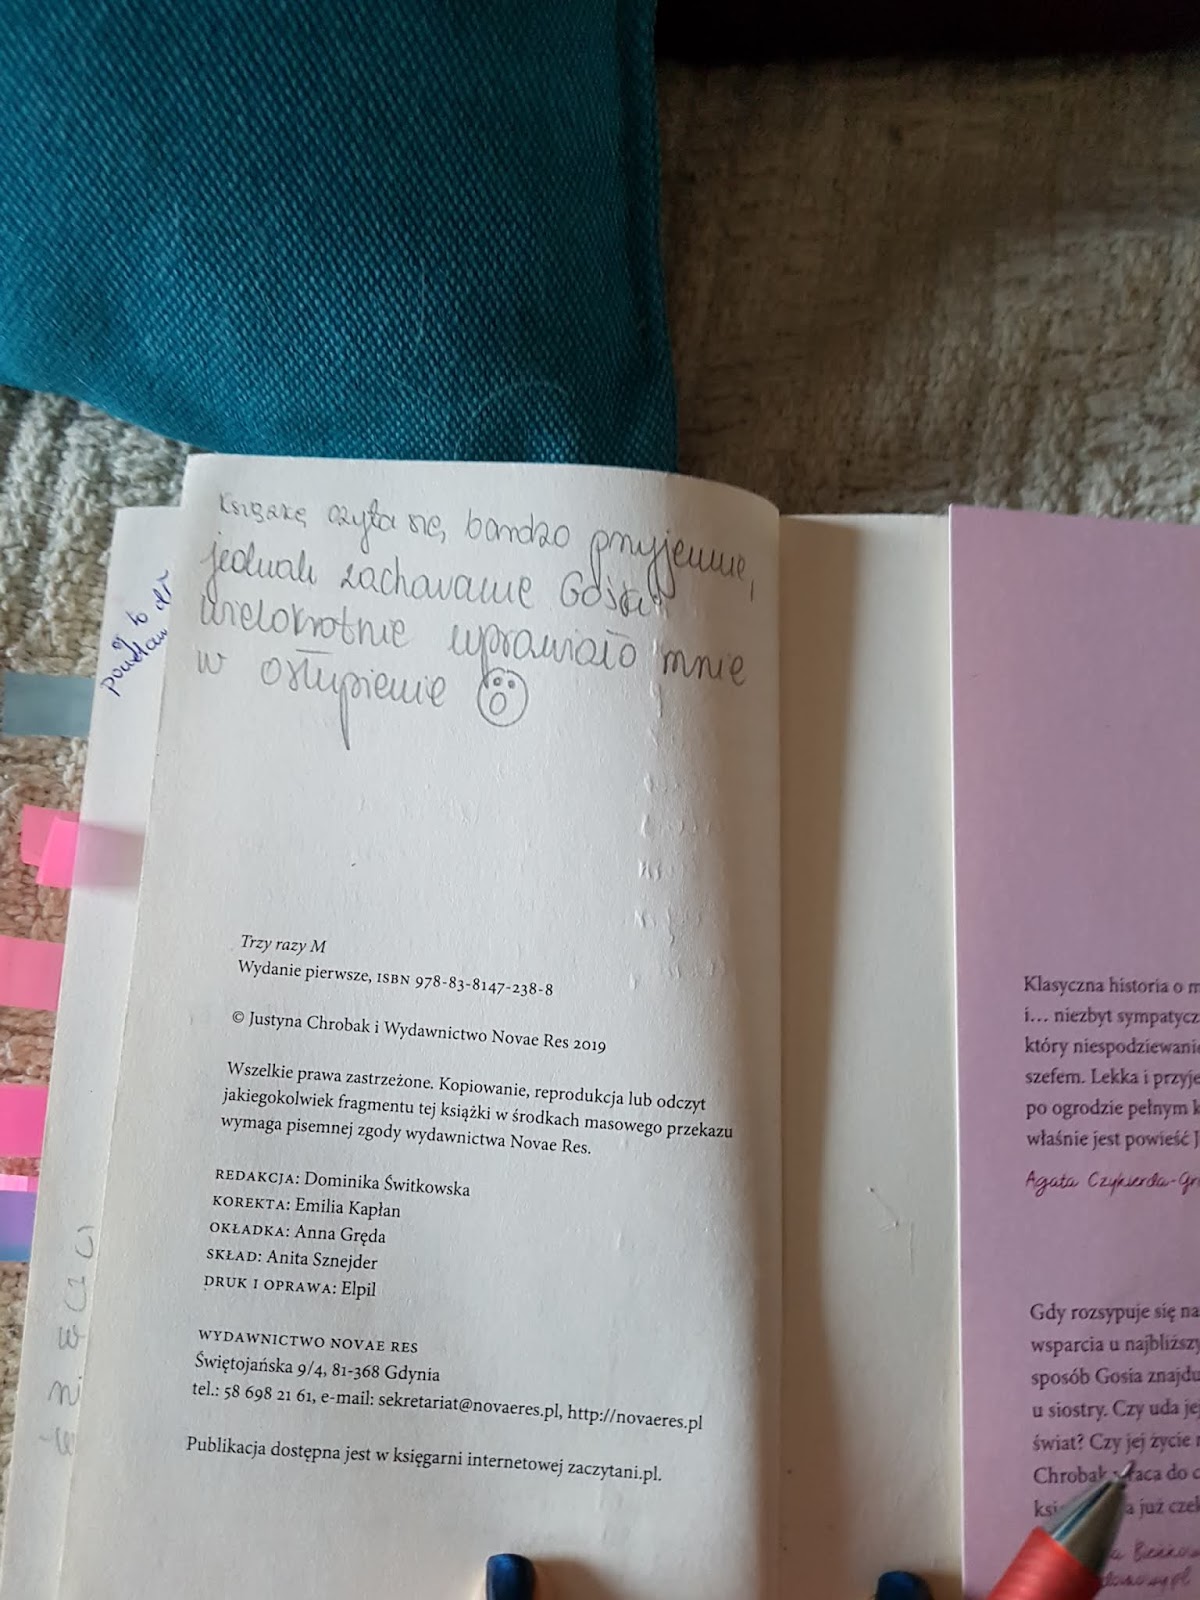 Książkę czyta się bardzo przyjemnie,
jednak zachowanie Gośki
wielokrotnie wprawiało mnie
w osłupienie
to
Trzy razy M
Wydanie pierwsze, ISBN 978-83-8147-238-8
© Justyna Chrobak i Wydawnictwo Novae Res 2019
Wszelkie prawa zastrzeżone. Kopiowanie, reprodukcja lub odczyt
jakiegokolwiek fragmentu tej książki w środkach masowego przekazu
wymaga pisemnej zgody wydawnictwa Novae Res.
REDAKCJA: Dominika Świtkowska
KOREKTA: Emilia Kapłan
OKŁADKA: Anna Gręda
SKŁAD: Anita Sznejder
DRUK I OPRAWA: Elpil
WYDAWNICTWO NOVAE RES
Świętojańska 9/4, 81-368 Gdynia
tel.: 58 698 21 61, e-mail: sekretariat@novaeres.pl, http://novaeres.pl
Publikacja dostępna jest w księgarni internetowej zaczytani.pl.
Klasyczna historia o m
i... niezbyt sympatycz
który niespodziewani
szefem. Lekka i przyje
po ogrodzie pełnym k
właśnie jest powieść J
Agata Czykierda-Gr
Gdy rozsypuje się na
wsparcia u najbliższy
sposób Gosia znajdu
u siostry. Czy uda jej
świat? Czy jej życie
Chrobak raca do
a już czek